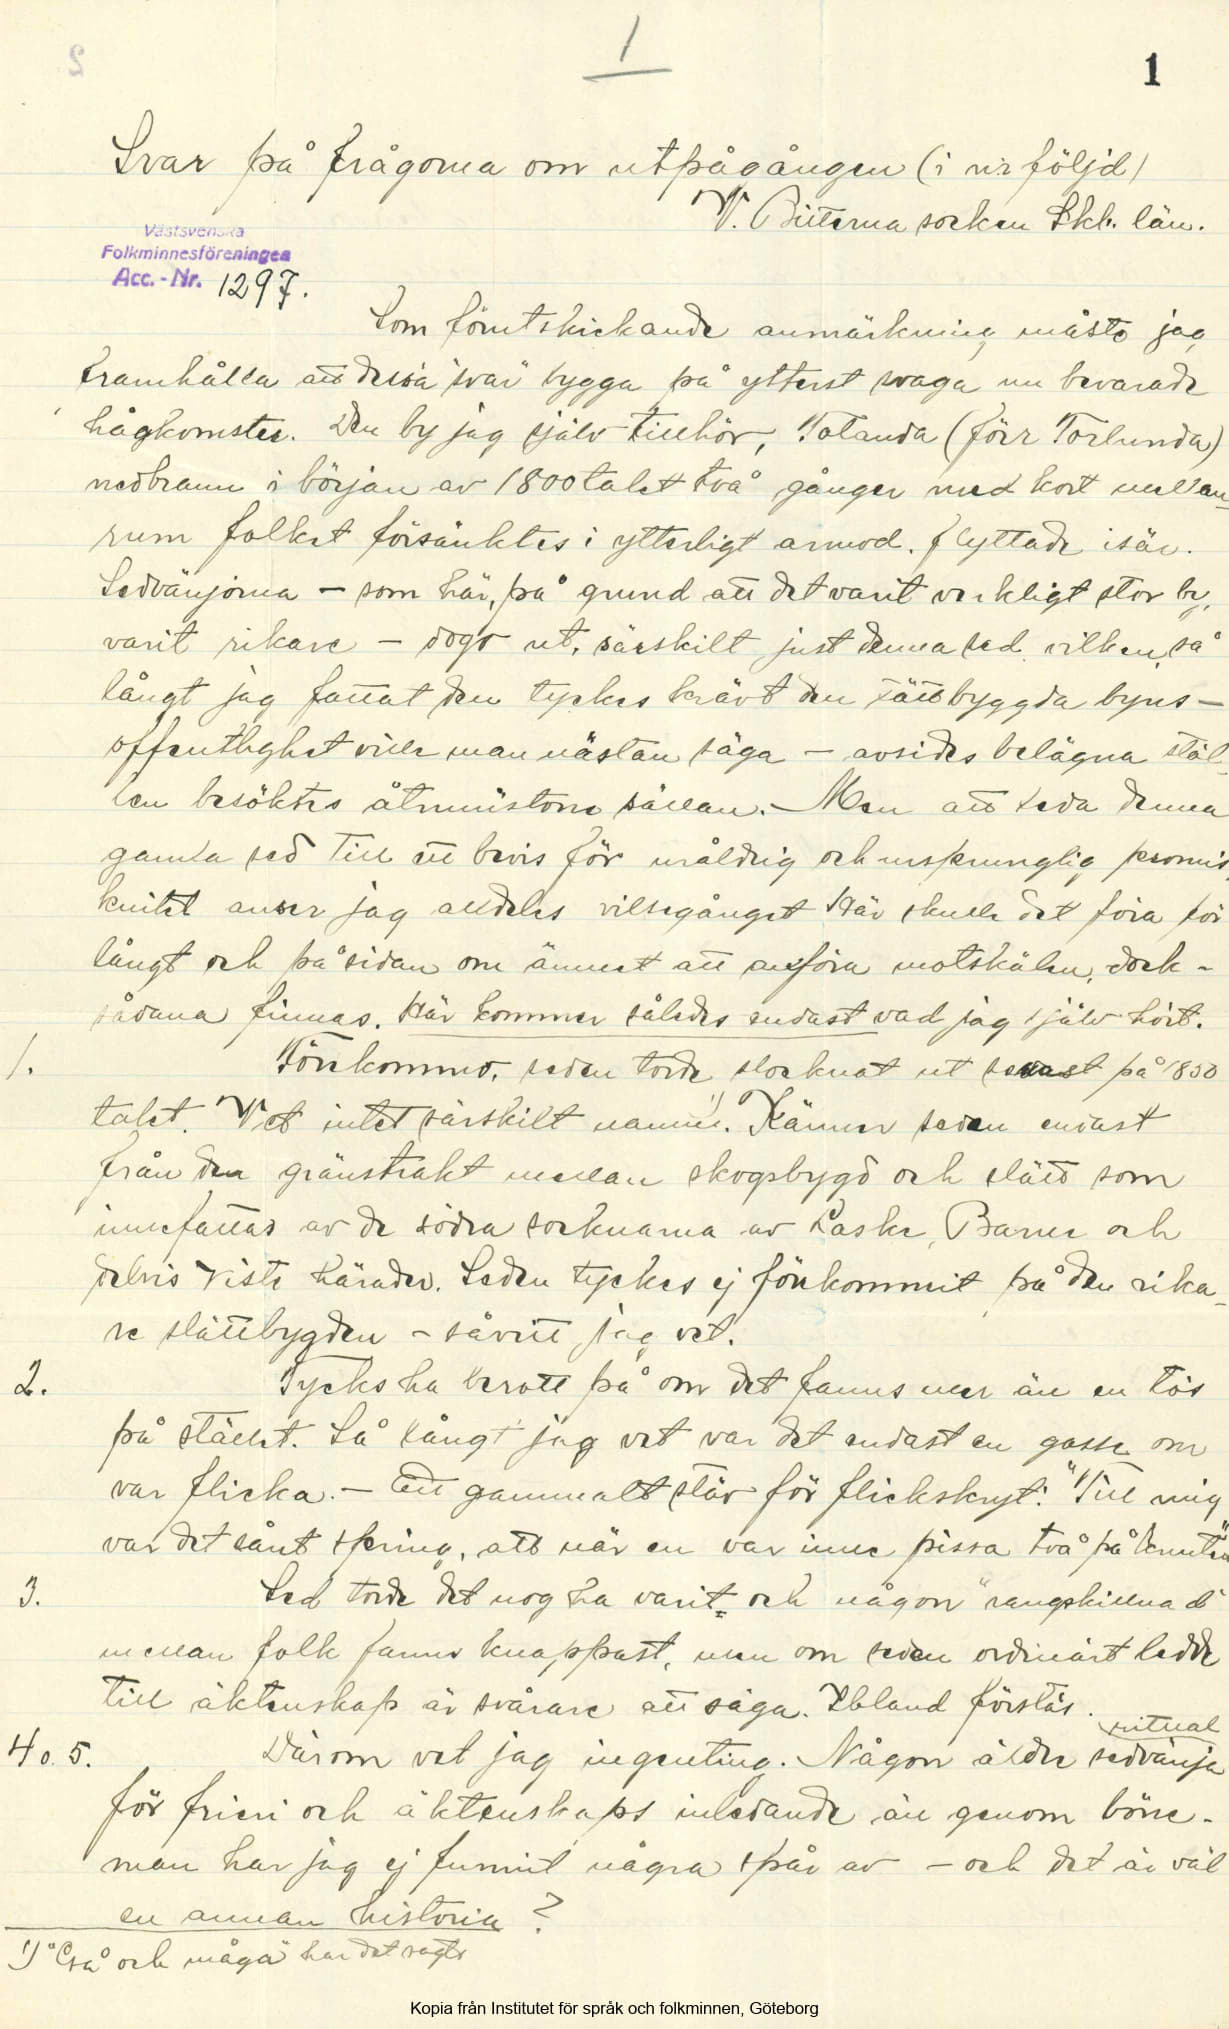 1
1
Svar på frågorna om utpågången (i nr följd)
V. Bitterna socken Skb. län.
Västsvenska
Folkminnesföreningen
Acc.-Nr. 1297.
Som förutskickande anmärkning måste jag
framhålla att dessa svar bygga på ytterst svaga nu bevarade
hågkomster. Den by jag själv tillhör, Totanda (förr Torlunda)
nedbrann i början av 1800talet två gånger med kort mellan-
rum folket försänktes i ytterligt armod. flyttade isär.
Sedvänjorna – som här, på grund att det varit verkligt stor by,
varit rikare – dogo ut, särskilt just denna sed vilken, så
långt jag fattat den tyckes krävt den tättbyggda byns –
offentlighet ville man nästan säga – avsides belägna stäl-
len besöktes åtminstone sällan. – Men att leda denna
gamla sed till ett bevis för uråldrig och ursprunglig promis-
kuitet anser jag alldeles vilsegånget Här skulle det föra för
långt och på sidan om ämnet att anföra motskälen, dock -
sådana finnas. Här kommer således endast vad jag själv hört.
1. Förekommo, seden torde slocknat ut senast på 1850
talet. Vet intet särskilt namn 1). Känner seden endast
från den gränstrakt mellan skogsbygd och slätt som
innefattas av de södra socknarna av Laske, Barne och
delvis Viste härader. Seden tyckes ej förekommit på den rika-
re slättbygden – såvitt jag vet.
2. Tycks ha berott på om det fanns mer än en tös
på stället. Så långt jag vet var det endast en gosse om
var flicka. – Ett gammalt stäv för flickskryt: "Till mig
var det sånt spring, att när en var inne pissa två på knuten"
3. Sed torde det nog ha varit, och någon "rangskillnad"
mellan folk fanns knappast, men om seden ordinärt ledde
till äktenskap är svårare att säga. Ibland förstås.
4 o. 5. Därom vet jag ingenting. Någon äldre sedvänja
ritual
för frieri och äktenskaps inledande än genom böne-
man har jag ej funnit några spår av – och det är väl
en annan historia?
1) "Gå och måga" har det sagts
Kopia från Institutet för språk och folkminnen, Göteborg